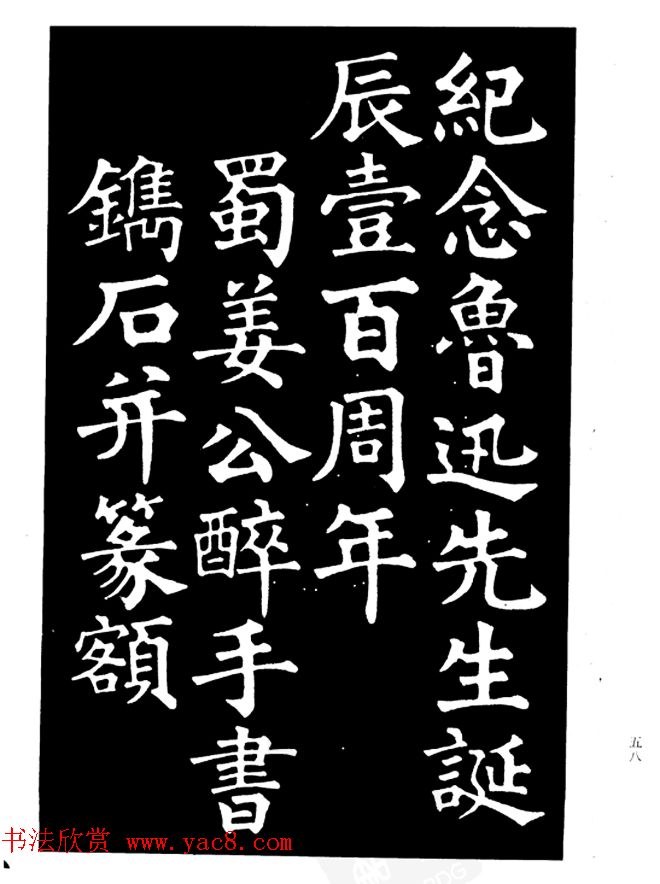 紀念魯迅先生誕
辰壹百周年
蜀姜公醉手書
鐫石并篆額
五八
书法欣赏 www.yac8.com